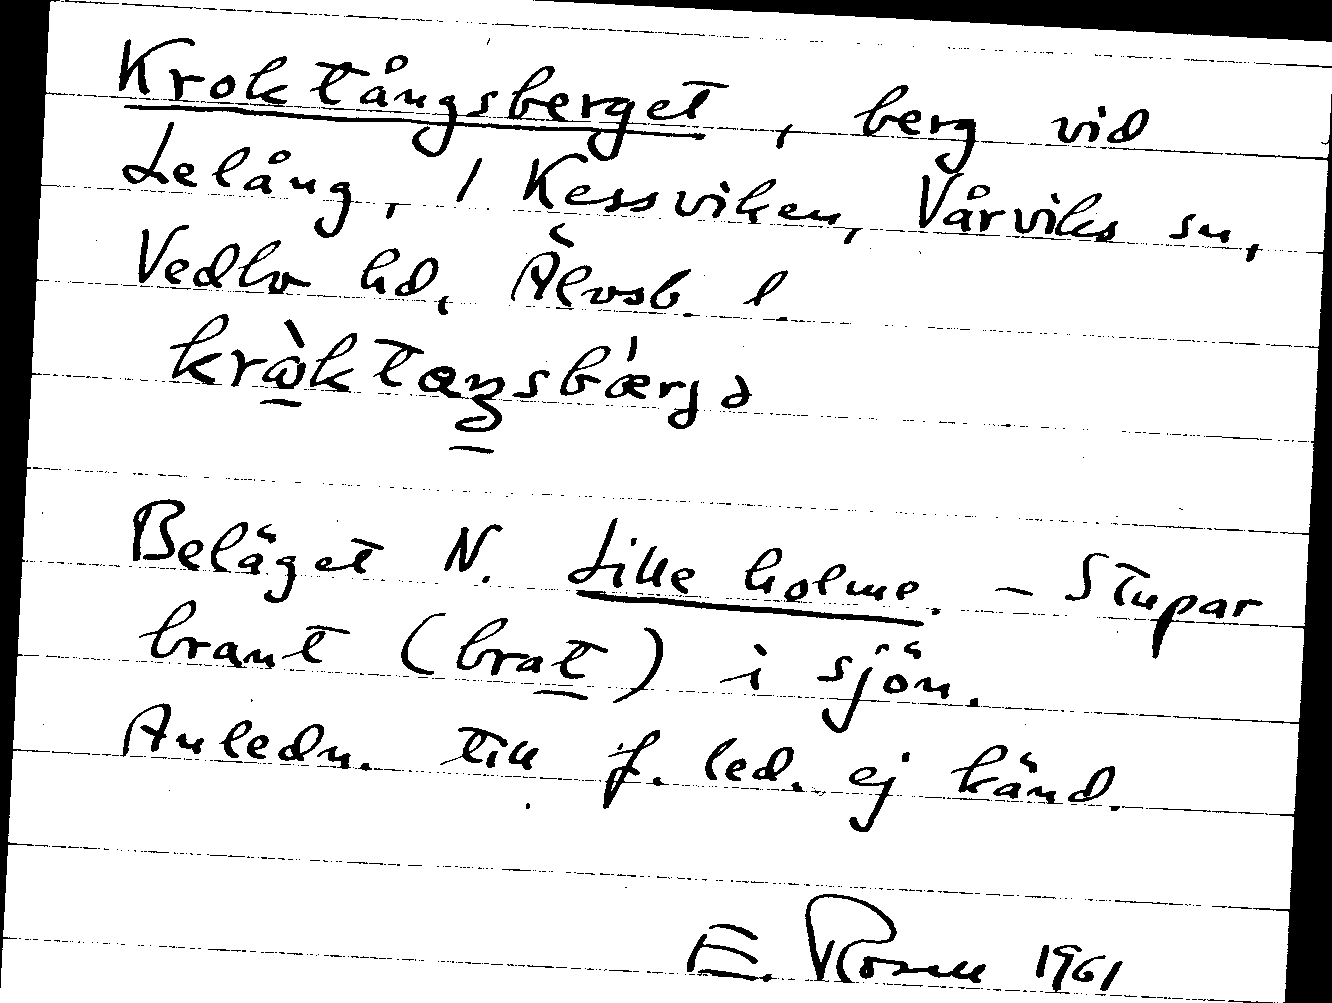 Kroktångsberget, berg vid
Lelång, / Kessviken, Vårviks sn,
Vedbo hd, Älvsb. l.
Beläget N. Lille holme. – Stupar
brant (brat) i sjön.
Anledn. till f. led. ej känd.
E. Rosell 1961